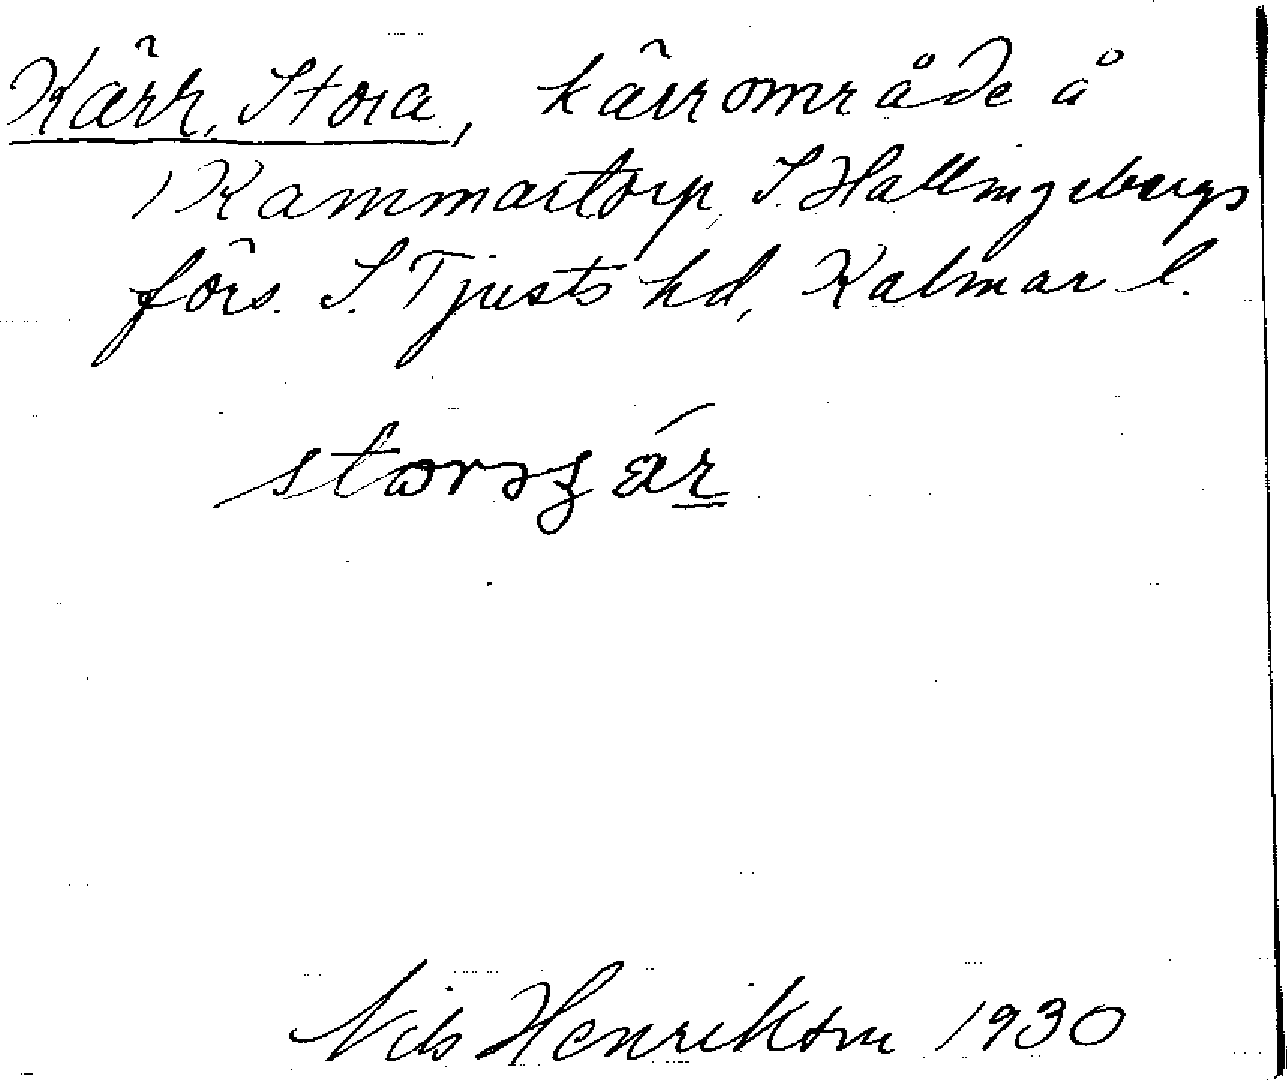 Kärr, Stora, kärrområde å
Kammartorp, S. Hallingebergs
förs. S. Tjusts hd, Kalmar l.
Nils Henrikson 1930